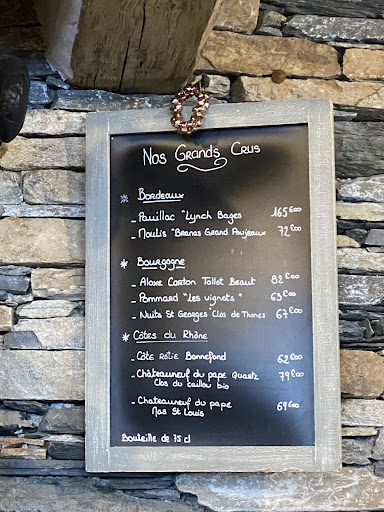 Nos Grands Crus
* Bordeaux
- Pauillac "Lynch Bages 165€00
- Moulis "Branas Grand Poujeaux 72€00
* Bourgogne
- Aloxe Corton Tollot Beaut 82€00
- Pommard "Les vignots" 63€00
- Nuits St Georges "Clos de Thorey 67€00
* Côtes du Rhône
- Côte Rôtie Bonnefond 62€00
- Châteauneuf du pape Quartz 79€00
Clos du caillou bio
- Chateauneuf du pape 69€00
Mas St Louis
Bouteille de 75 cl